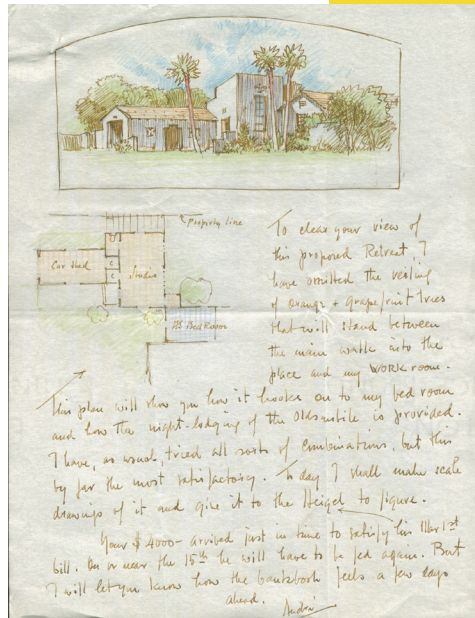 Property line
Car shed
Studio
C
C
AS Bed Room
To clear your view of
this proposed Retreat I
have omitted the vesting
of orange + grapefruit trees
that will stand between
the main walk into the
place and my WORK room.
This plan will show you how it hooks on to my bed room
and how the night-lodging of the Oldsmobile is provided.
I have, as usual, tried all sorts of combinations, but this
by far the most satisfactory. Today I shall make scale
drawings of it and give it to the Heigel to figure.
Your $4000- arrived just in time to satisfy his Mar 1st
bill. On or near the 15th he will have to be fed again. But
I will let you know how the bankbook feels a few days
ahead.
André